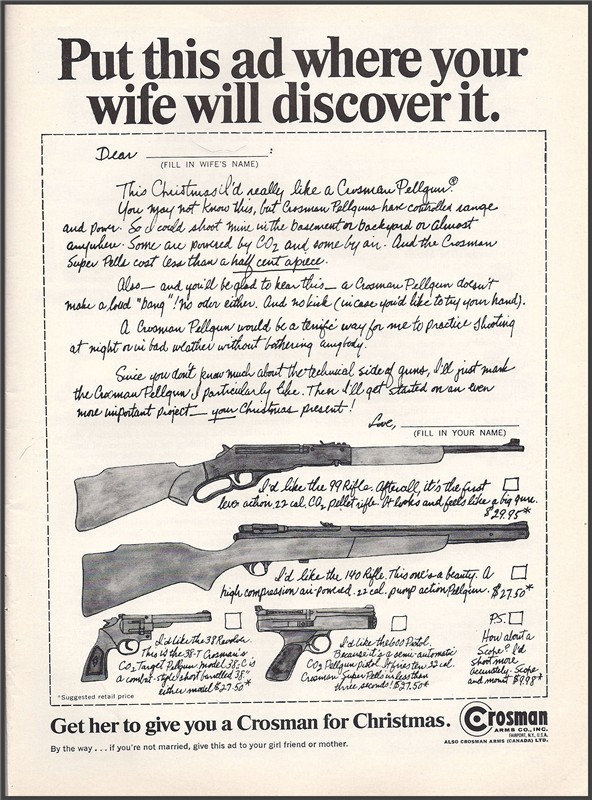 Put this ad where your
wife will discover it.
Dear ____________ :
(FILL IN WIFE'S NAME)
This Christmas I'd really like a Crosman Pellgun®.
You may not know this, but Crosman Pellguns have controlled range
and power. So I could shoot mine in the basement or backyard or almost
anywhere. Some are powered by CO2 and some by air. And the Crosman
Super Pells cost less than a half cent apiece.
Also — and you'll be glad to hear this — a Crosman Pellgun doesn't
make a loud "bang"! No odor either. And no kick (in case you'd like to try your hand).
A Crosman Pellgun would be a terrific way for me to practice shooting
at night or in bad weather without bothering anybody.
Since you don't know much about the technical side of guns, I'll just mark
the Crosman Pellgun I particularly like. Then I'll get started on an even
more important project — your Christmas present!
Love, ____________
(FILL IN YOUR NAME)
I'd like the 99 Rifle. After all, it's the first
lever action .22 cal. CO2 pellet rifle. It looks and feels like a big game.
$29.95*
I'd like the 140 Rifle. This one's a beauty. A
high compression air-powered .22 cal. pump action Pellgun. $27.50*
I'd like the 38 Revolver.
This is the 38-T Crosman's
CO2 Target Pellgun model 38-C is
a combat-style short barrelled 38"
either model $27.50*
I'd like the 600 Pistol.
Because it's a semi-automatic
CO2 Pellgun pistol. It fires ten .22 cal.
Crosman Super Pells in less than
three seconds! $27.50*
P.S.
How about a
Scope? I'd
shoot more
accurately. Scope
and mount $9.98*
*Suggested retail price
Get her to give you a Crosman for Christmas.
Crosman
ARMS CO., INC.
FAIRPORT, N.Y., U.S.A.
ALSO CROSMAN ARMS (CANADA) LTD.
By the way . . . if you're not married, give this ad to your girl friend or mother.